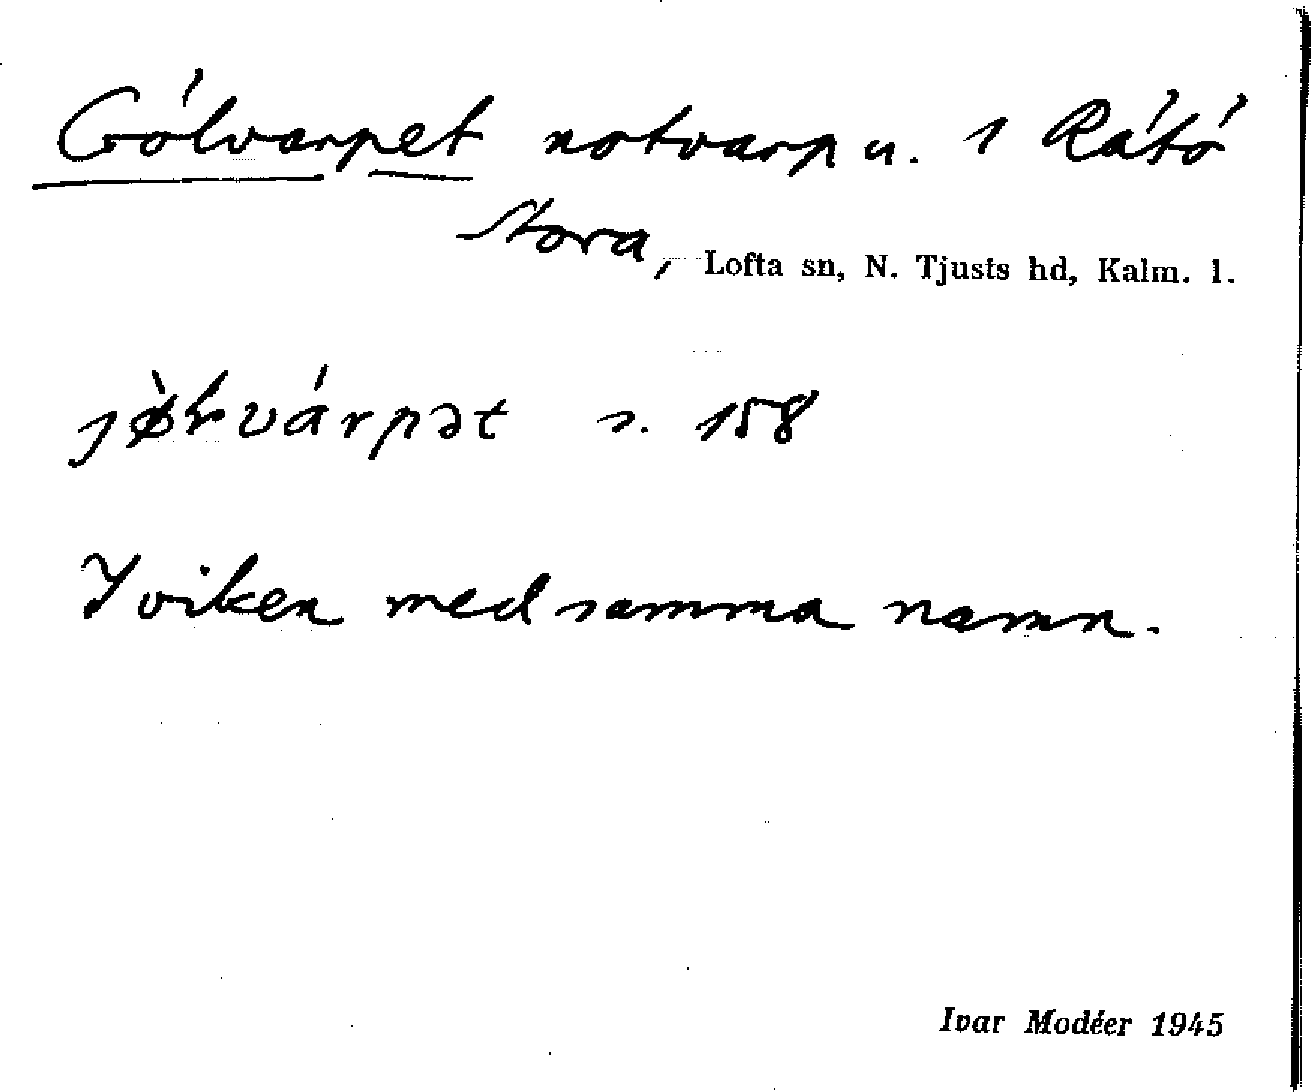 Gölvarpet notvarp u. 1 Rátö
Stora, Lofta sn, N. Tjusts hd, Kalm. l.
s. 158
I viken med samma namn.
Ivar Modéer 1945